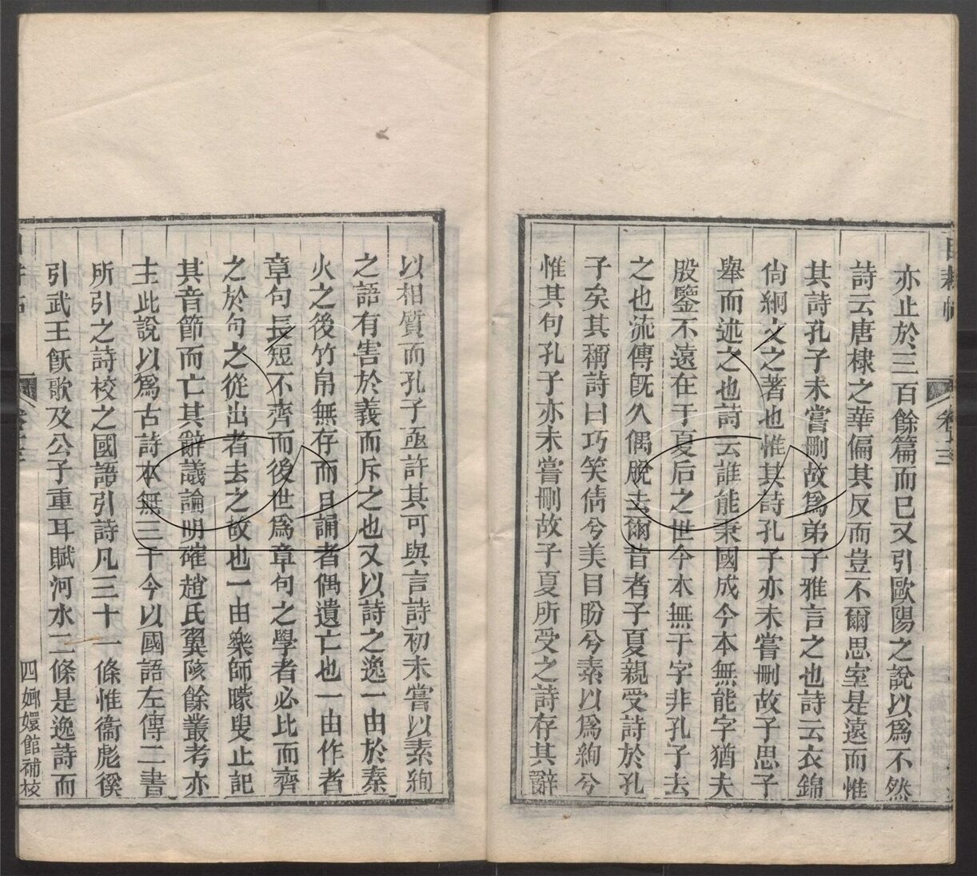 亦止於三百餘篇而已又引歐陽之說以爲不然
詩云唐棣之華偏其反而豈不爾思室是遠而惟
其詩孔子未嘗刪故爲弟子雅言之也詩云衣錦
尙絅文之著也惟其詩孔子亦未嘗刪故子思子
舉而述之也詩云誰能秉國成今本無能字猶夫
殷鑒不遠在于夏后之世今本無于字非孔子去
之也流傳旣久偶脫去爾昔者子夏親受詩於孔
子矣其稱詩曰巧笑倩兮美目盼兮素以爲絢兮
惟其句孔子亦未嘗刪故子夏所受之詩存其辭
以相質而孔子亟許其可與言詩初未嘗以素絢
之語有害於義而斥之也又以詩之逸一由於秦
火之後竹帛無存而日誦者偶遺亡也一由作者
章句長短不齊而後世爲章句之學者必比而齊
之於句之從出者去之故也一由樂師矇叟止記
其音節而亡其辭議論明確趙氏翼陔餘叢考亦
主此說以爲古詩本無三千今以國語左傳二書
所引之詩校之國語引詩凡三十一條惟衞彪徯
引武王飫歌及公子重耳賦河水二條是逸詩而
四嫏嬛館補校